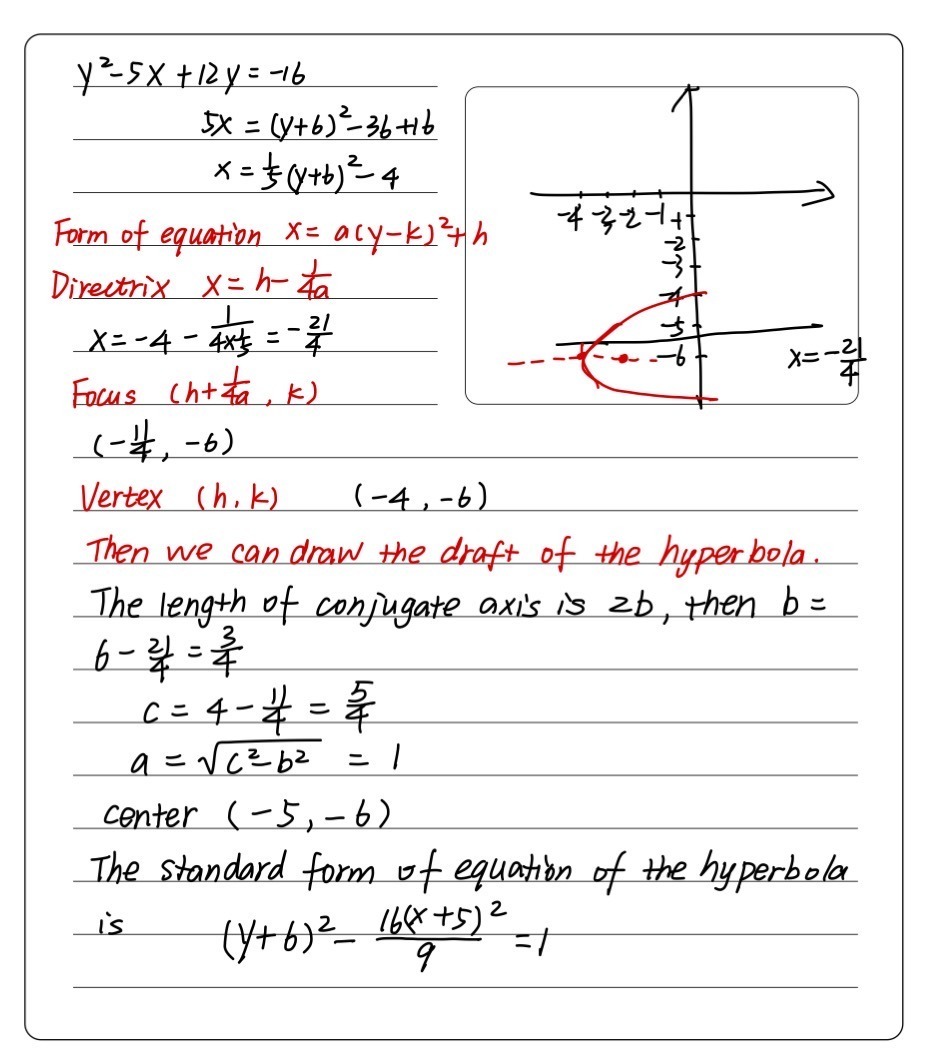 y²-5x+12y=-16
5x = (y+6)²-36+16
x = 1/5 (y+6)² - 4
Form of equation x = a(y-k)²+h
Directrix x = h - 1/4a
x = -4 - 1/(4×1/5) = -21/4
Focus (h+1/4a, k)
(-11/4, -6)
-4 -3 -2 -1
-1
-2
-3
-4
-5
-6
x = -21/4
Vertex (h, k) (-4, -6)
Then we can draw the draft of the hyperbola.
The length of conjugate axis is 2b, then b =
6 - 21/4 = 3/4
c = 4 - 11/4 = 5/4
a = √(c²-b²) = 1
center (-5, -6)
The standard form of equation of the hyperbola
is (y+6)² - 16(x+5)²/9 = 1